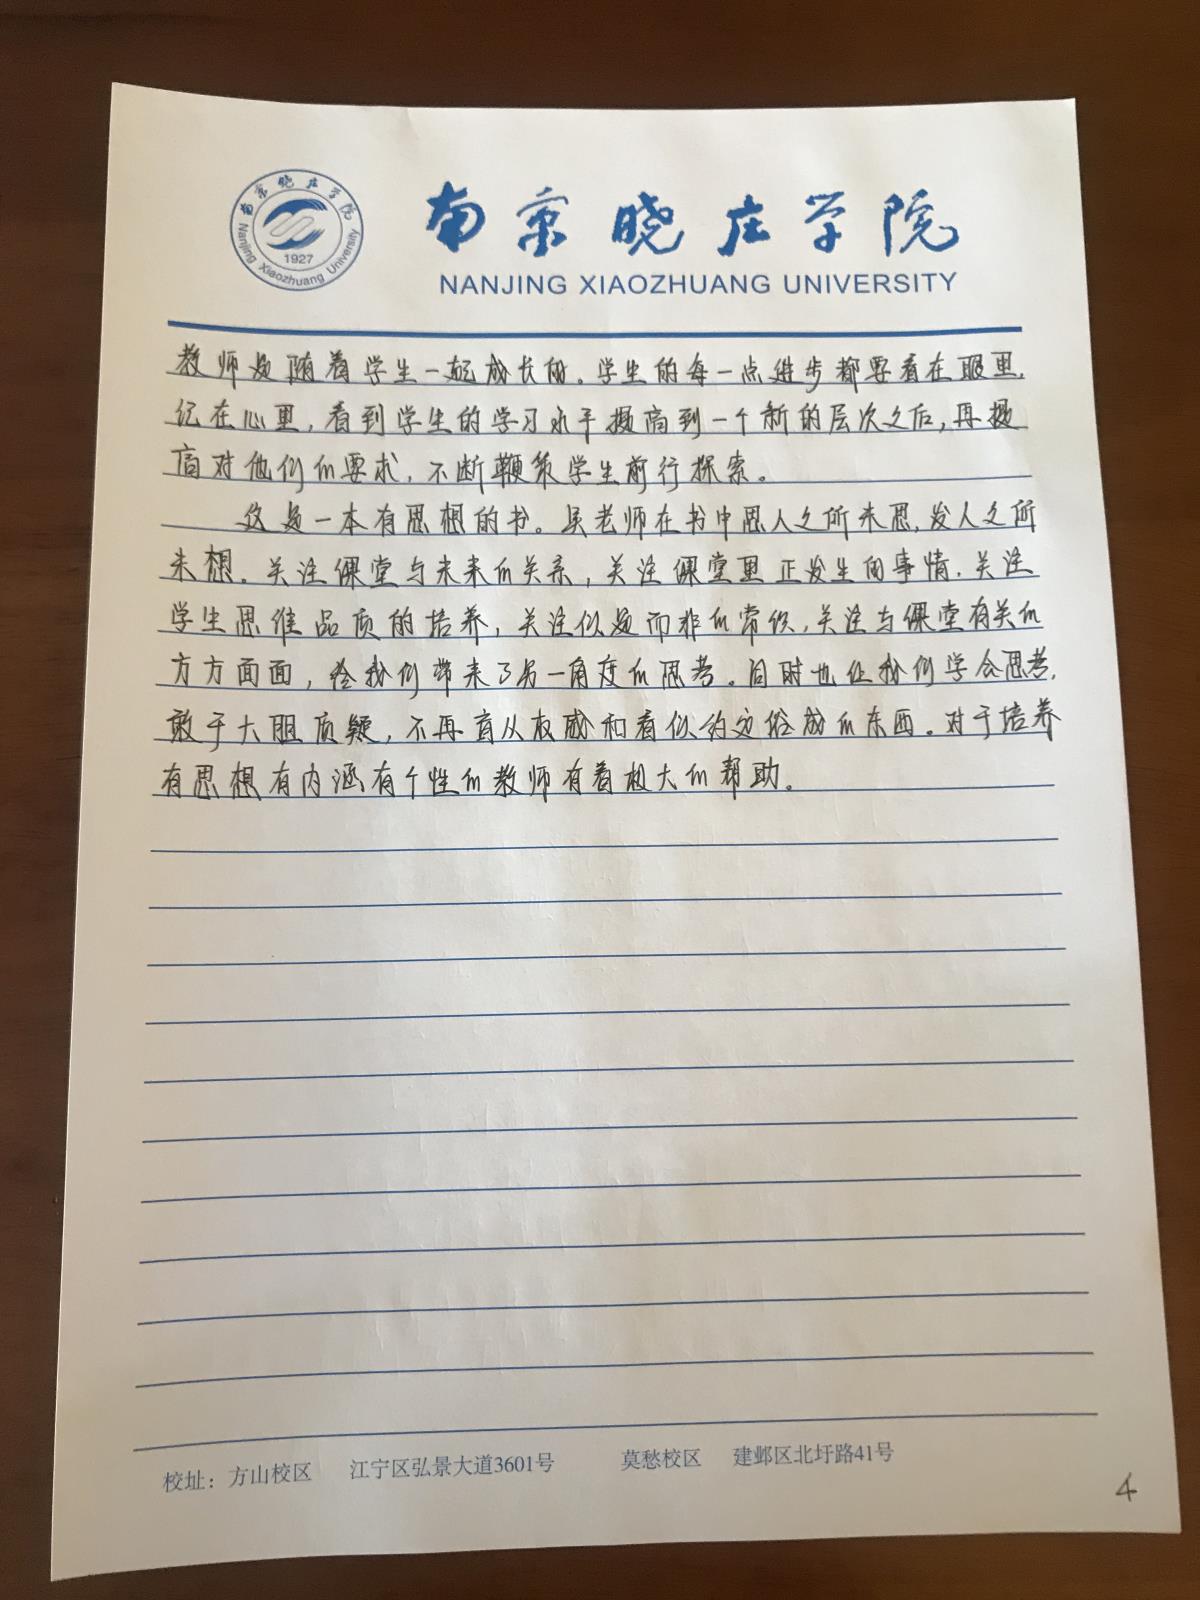 南京晓庄学院
Nanjing Xiaozhuang University
1927
南京晓庄学院
NANJING XIAOZHUANG UNIVERSITY
教师是随着学生一起成长的。学生的每一点进步都要看在眼里,
记在心里,看到学生的学习水平提高到一个新的层次之后,再提
高对他们的要求,不断鞭策学生前行探索。
这是一本有思想的书。吴老师在书中思人之所未思,发人之所
未想。关注课堂与未来的关系,关注课堂里正发生的事情,关注
学生思维品质的培养,关注似是而非的常态,关注与课堂有关的
方方面面,给我们带来了另一角度的思考。同时也让我们学会思考,
敢于大胆质疑,不再盲从权威和看似约定俗成的东西。对于培养
有思想有内涵有个性的教师有着极大的帮助。
校址:方山校区 江宁区弘景大道3601号 莫愁校区 建邺区北圩路41号
4